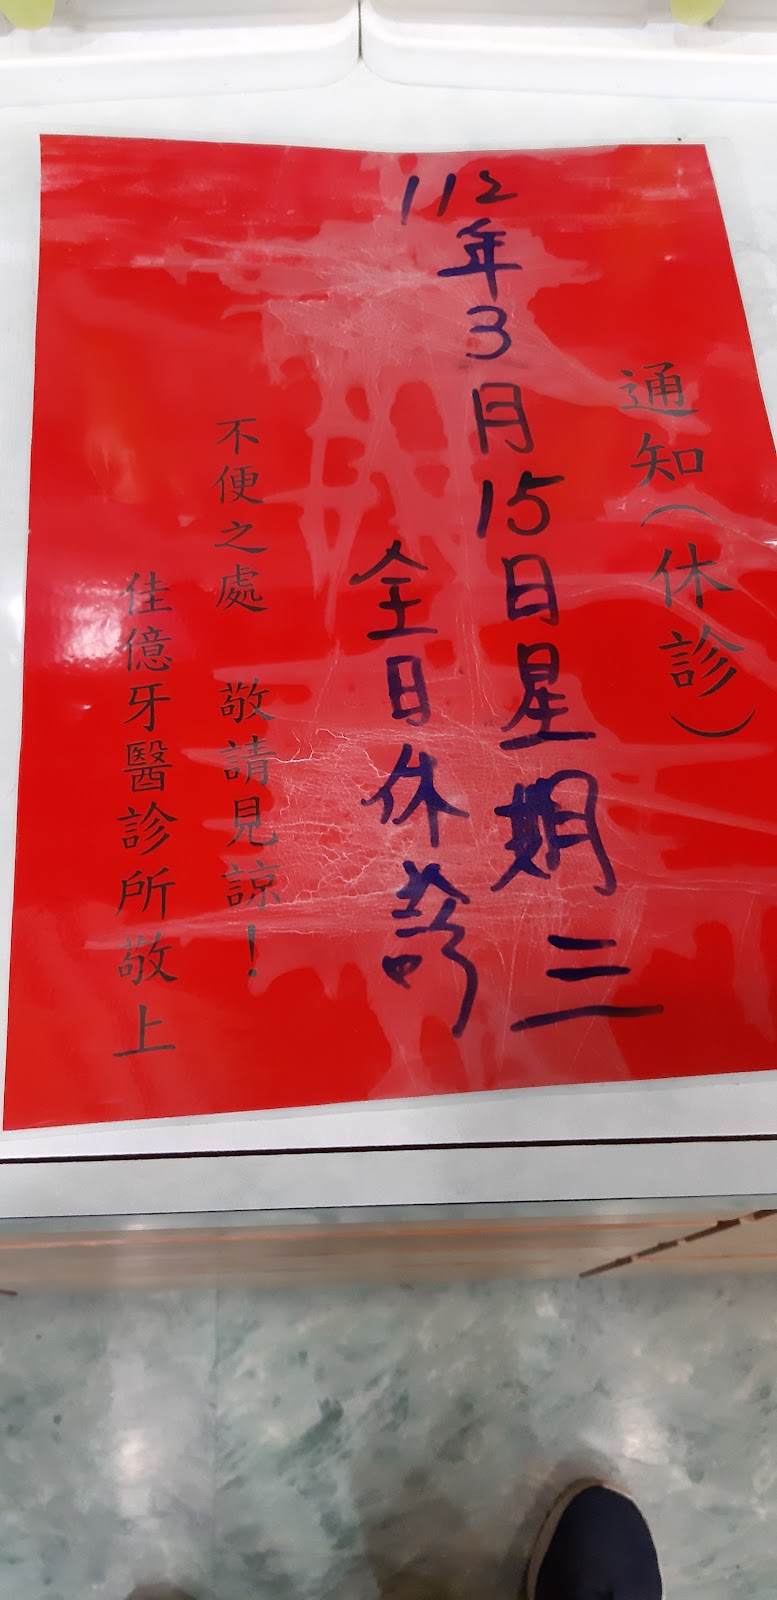 通知(休診)
112年3月15日星期三
全日休診
不便之處 敬請見諒!
佳億牙醫診所敬上